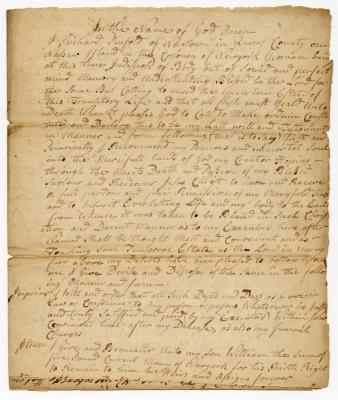 In the Name of God Amen
I Richard Penfold of Newtown in Queens County on
Nassau Island in the Colony of Newyork Yeoman being
at this time Indisposd of Body but of Sound and perfect
mind Memory and Understanding Blesed be the Lord for
the Same But Calling to mind the Uncertain Estate of
this Transitory Life and that all flesh must Yeald Unto
Death when it pleases God to Call Do make ordain Constitute
and Declare this to be my last will and Testament
in Manner and form following that is to say First and
Principally I Recommend my Precious and immortal Soul
into the Mercifull hands of God my Creator
through the Merits Death and Passion of my Blesed
Saviour and Redeemer Jesus Christ to have and Receive
a full pardon and Remission of my
and to Inherit Everlasting Life and my body to the Earth
from whence it was taken to be Buried in Such
and Decent Manner as to my Executors here after
named Shall be thought Meet and Convenient and as
Touching Such Worldly Estate as the Lord in Mercy
far above my Deserts have been pleased to bestow upon
me I Give Devise and Dispose of the Same in the following
Manner and form
Imprimis I Will and order that all Such Debts and Dues as I owe in
Law or Conscience to any person whatsoever be
and truly Satisfied and paid by my Executors within Some
Convenient time after my Decease as also my funeral
Charges
Item I Give and Bequeath Unto my Son William the Sum of
five Pound Current Money of Newyork for his Birth Right
to Remain to him his Heirs and assigns forever